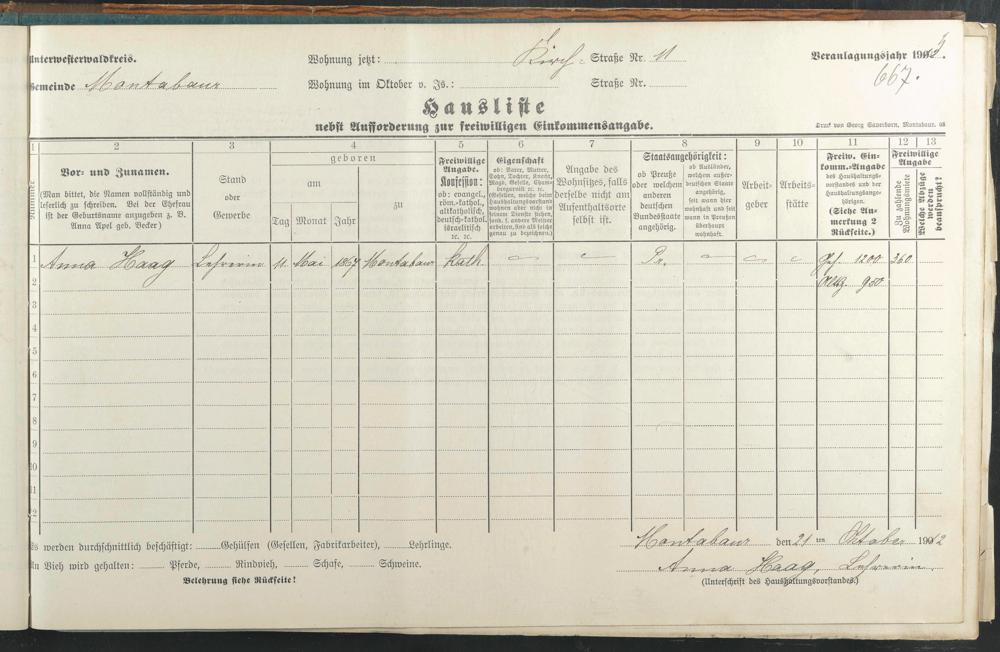 Unterwesterwaldkreis. Wohnung jetzt: Kirch- Straße Nr. 11 Veranlagungsjahr 1903.
Gemeinde Montabaur Wohnung im Oktober v. Js.: Straße Nr. 667.
Hausliste
nebst Aufforderung zur freiwilligen Einkommensangabe.
Druck von Georg Sauerborn, Montabaur.
1 2 3 4 5 6 7 8 9 10 11 12 13
Nummer
Vor- und Zunamen.
(Man bittet, die Namen vollständig und
leserlich zu schreiben. Bei der Ehefrau
ist der Geburtsname anzugeben z. B.
Anna Apel geb. Becker)
Stand
oder
Gewerbe
geboren
am zu
Tag Monat Jahr
Freiwillige
Angabe.
Konfession:
ob: evangel.,
röm.-kathol.,
altkatholisch,
deutsch-kathol.
israelitisch
ec. ec.
Eigenschaft
ob: Vater, Mutter,
Sohn, Tochter, Knecht,
Magd, Geselle, Cham-
bergarnist ec. ec.
(Gesellen, welche beim
Haushaltungsvorstand
wohnen aber nicht in
seinem Dienste stehen,
sond. f. andere Meister
arbeiten, sind als solche
genau zu bezeichnen.)
Angabe des
Wohnsitzes, falls
derselbe nicht am
Aufenthaltsorte
selbst ist.
Staatsangehörigkeit:
ob Preuße
oder welchem
anderen
deutschen
Bundesstaate
angehörig.
ob Ausländer,
welchem außer-
deutschen Staate
angehörig,
seit wann hier
wohnhaft und seit
wann in Preußen
überhaupt
wohnhaft.
Arbeit-
geber
Arbeits-
stätte
Freiw. Ein-
komm.-Angabe
des Haushaltungs-
vorstandes und der
Haushaltungsange-
hörigen.
(Siehe An-
merkung 2
Rückseite.)
Freiwillige
Angabe
Zu zahlende
Wohnungsmiete
Welche Abzüge
werden
beansprucht?
1 Anna Haag Lehrerin 11 Mai 1867 Montabaur kath. Pr. Geh. 1200 360
2 900
3
4
5
6
7
8
9
10
11
12
Es werden durchschnittlich beschäftigt: Gehülfen (Gesellen, Fabrikarbeiter), Lehrlinge.
An Vieh wird gehalten: Pferde, Rindvieh, Schafe, Schweine.
Belehrung siehe Rückseite!
Montabaur den 21 ten Oktober 1902
Anna Haag, Lehrerin.
(Unterschrift des Haushaltungsvorstandes.)